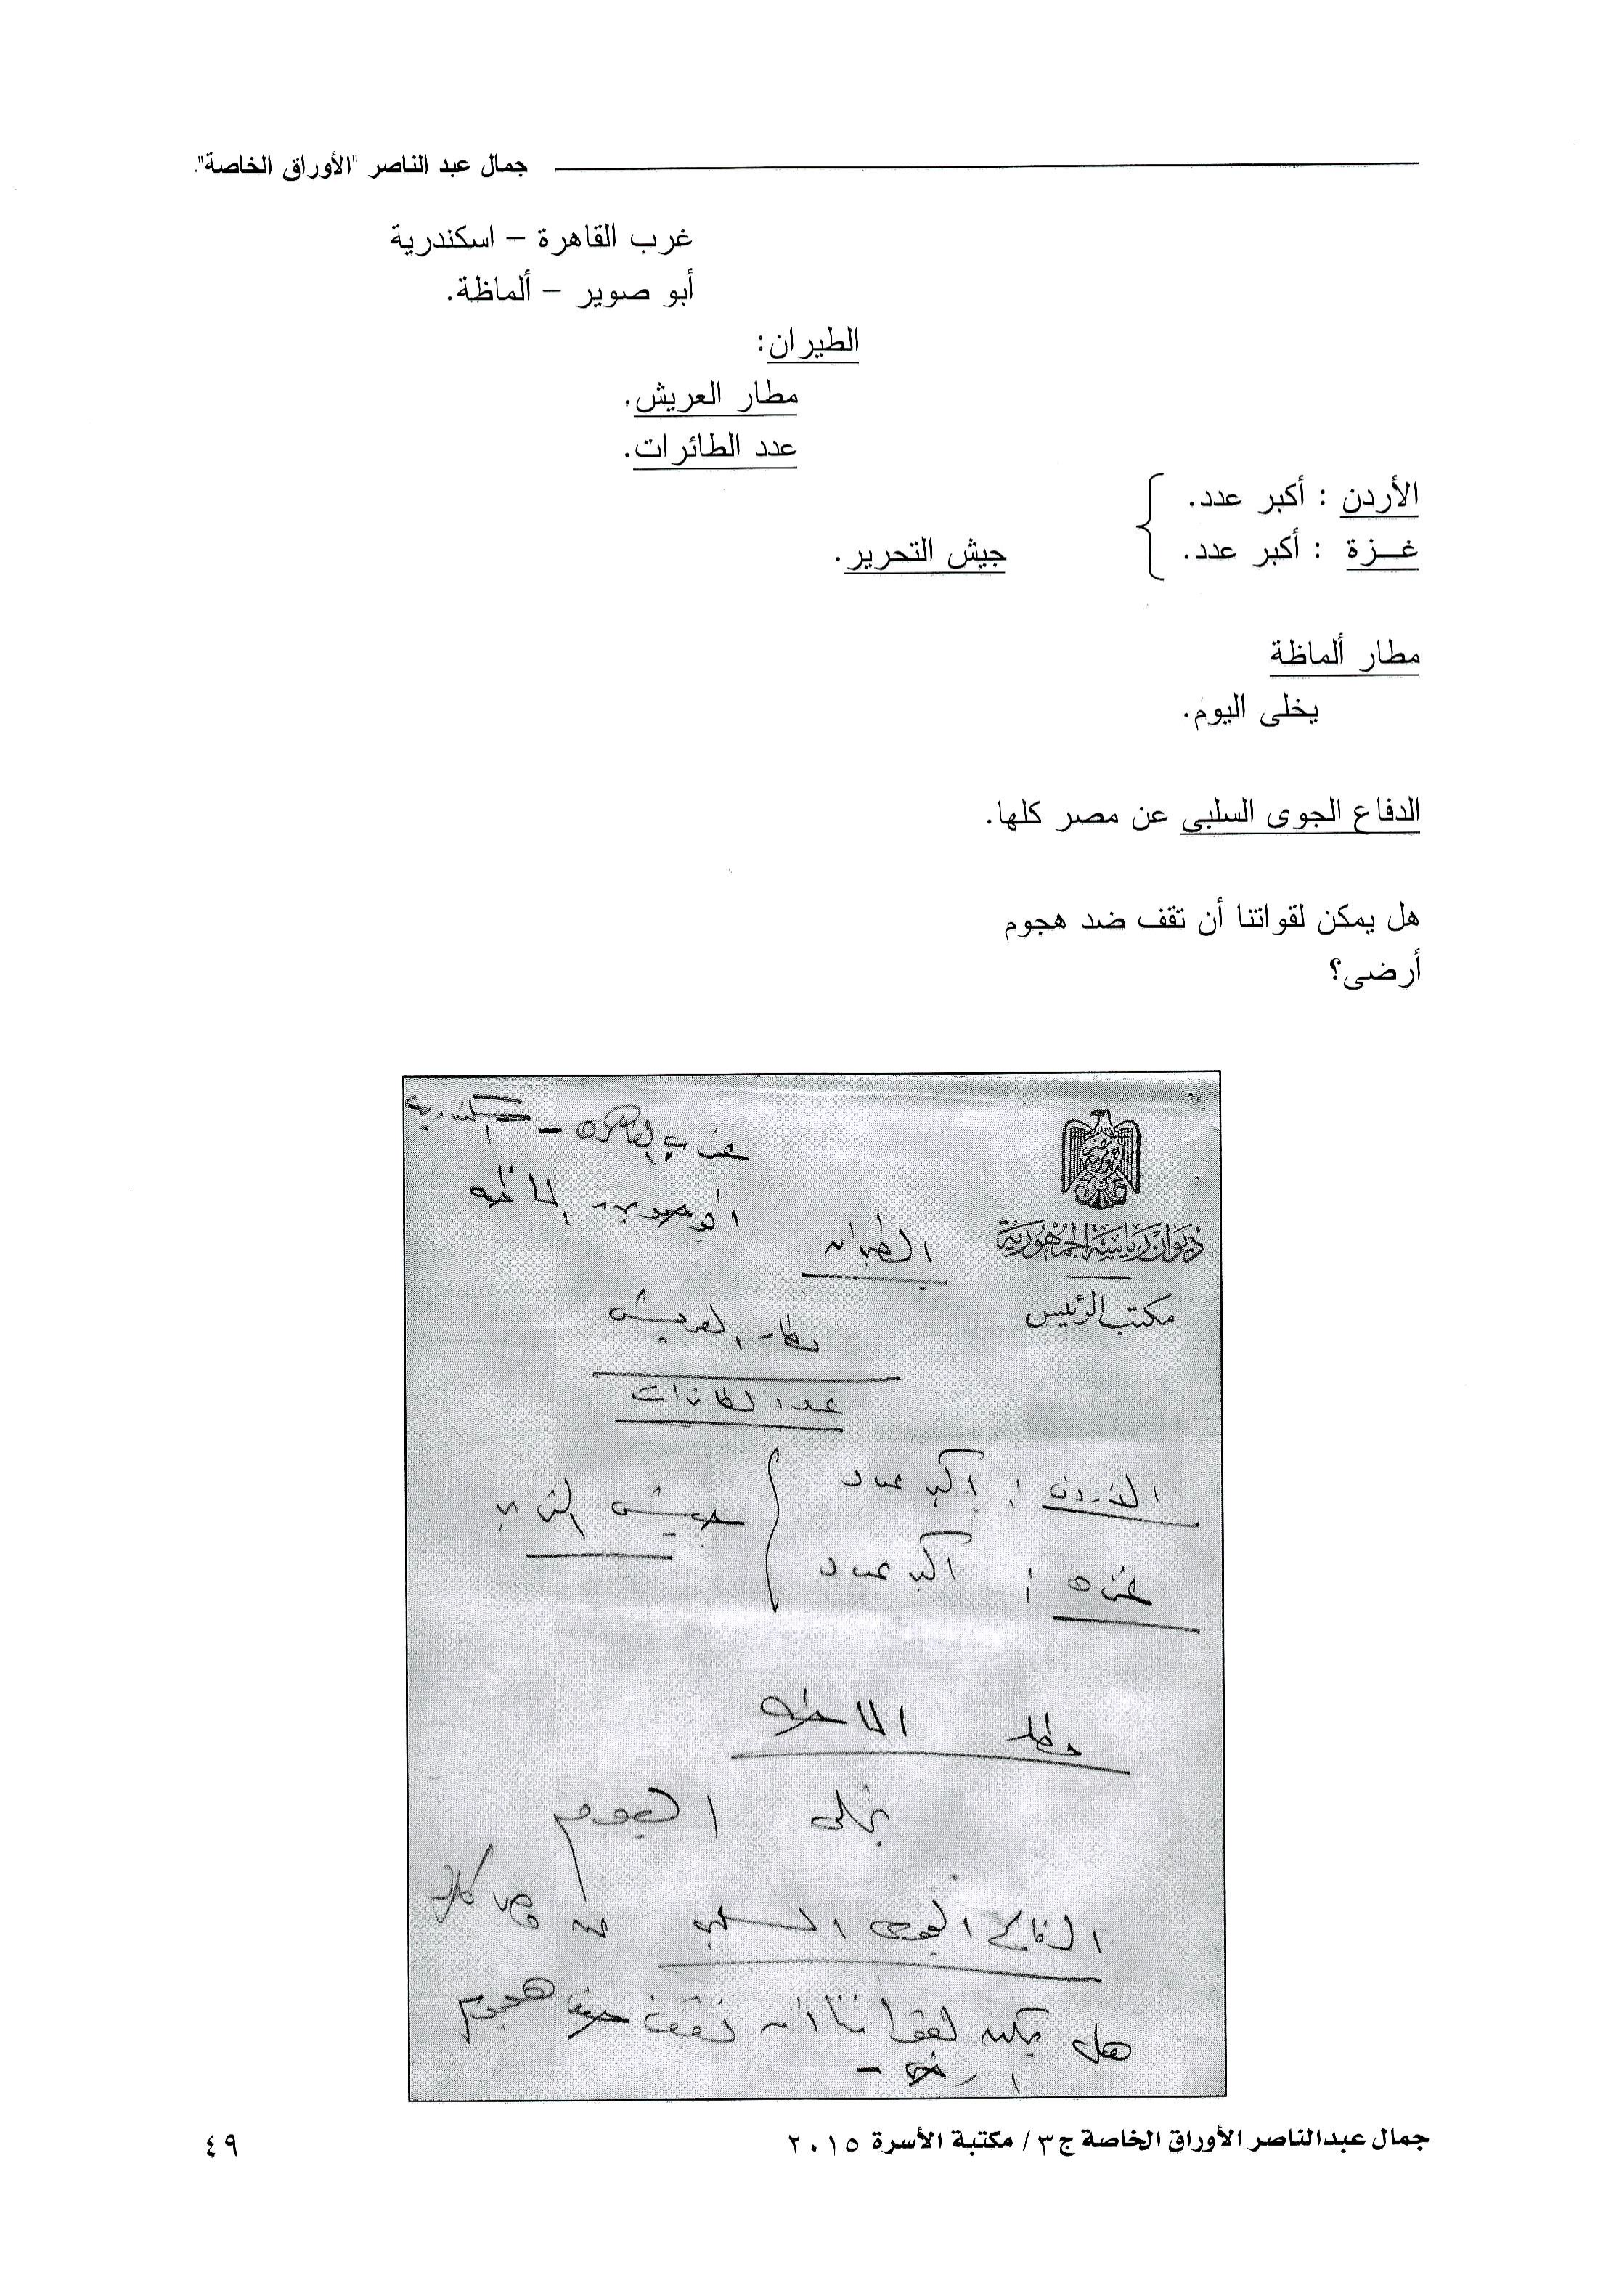 جمال عبد الناصر "الأوراق الخاصة".
غرب القاهرة – اسكندرية
أبو صوير – ألماظة.
الطيران:
مطار العريش.
عدد الطائرات.
الأردن : أكبر عدد.
غـــزة : أكبر عدد.
جيش التحرير.
مطار ألماظة
يخلى اليوم.
الدفاع الجوى السلبى عن مصر كلها.
هل يمكن لقواتنا أن تقف ضد هجوم
أرضى؟
غرب القاهرة – اسكندرية
ابو صوير - الماظه
ديوان رياسة الجمهورية
الطيران
مكتب الرئيس
مطار العريش
عدد الطائرات
الاردن : اكبر عدد
جيش التحرير
غزه : اكبر عدد
مطار الماظه
يخلى اليوم
الدفاع الجوى السلبى عن مصر كلها
هل يمكن لقواتنا ان تقف ضد هجوم
ارضى -
جمال عبدالناصر الأوراق الخاصة ج٣/ مكتبة الأسرة ٢٠١٥
٤٩